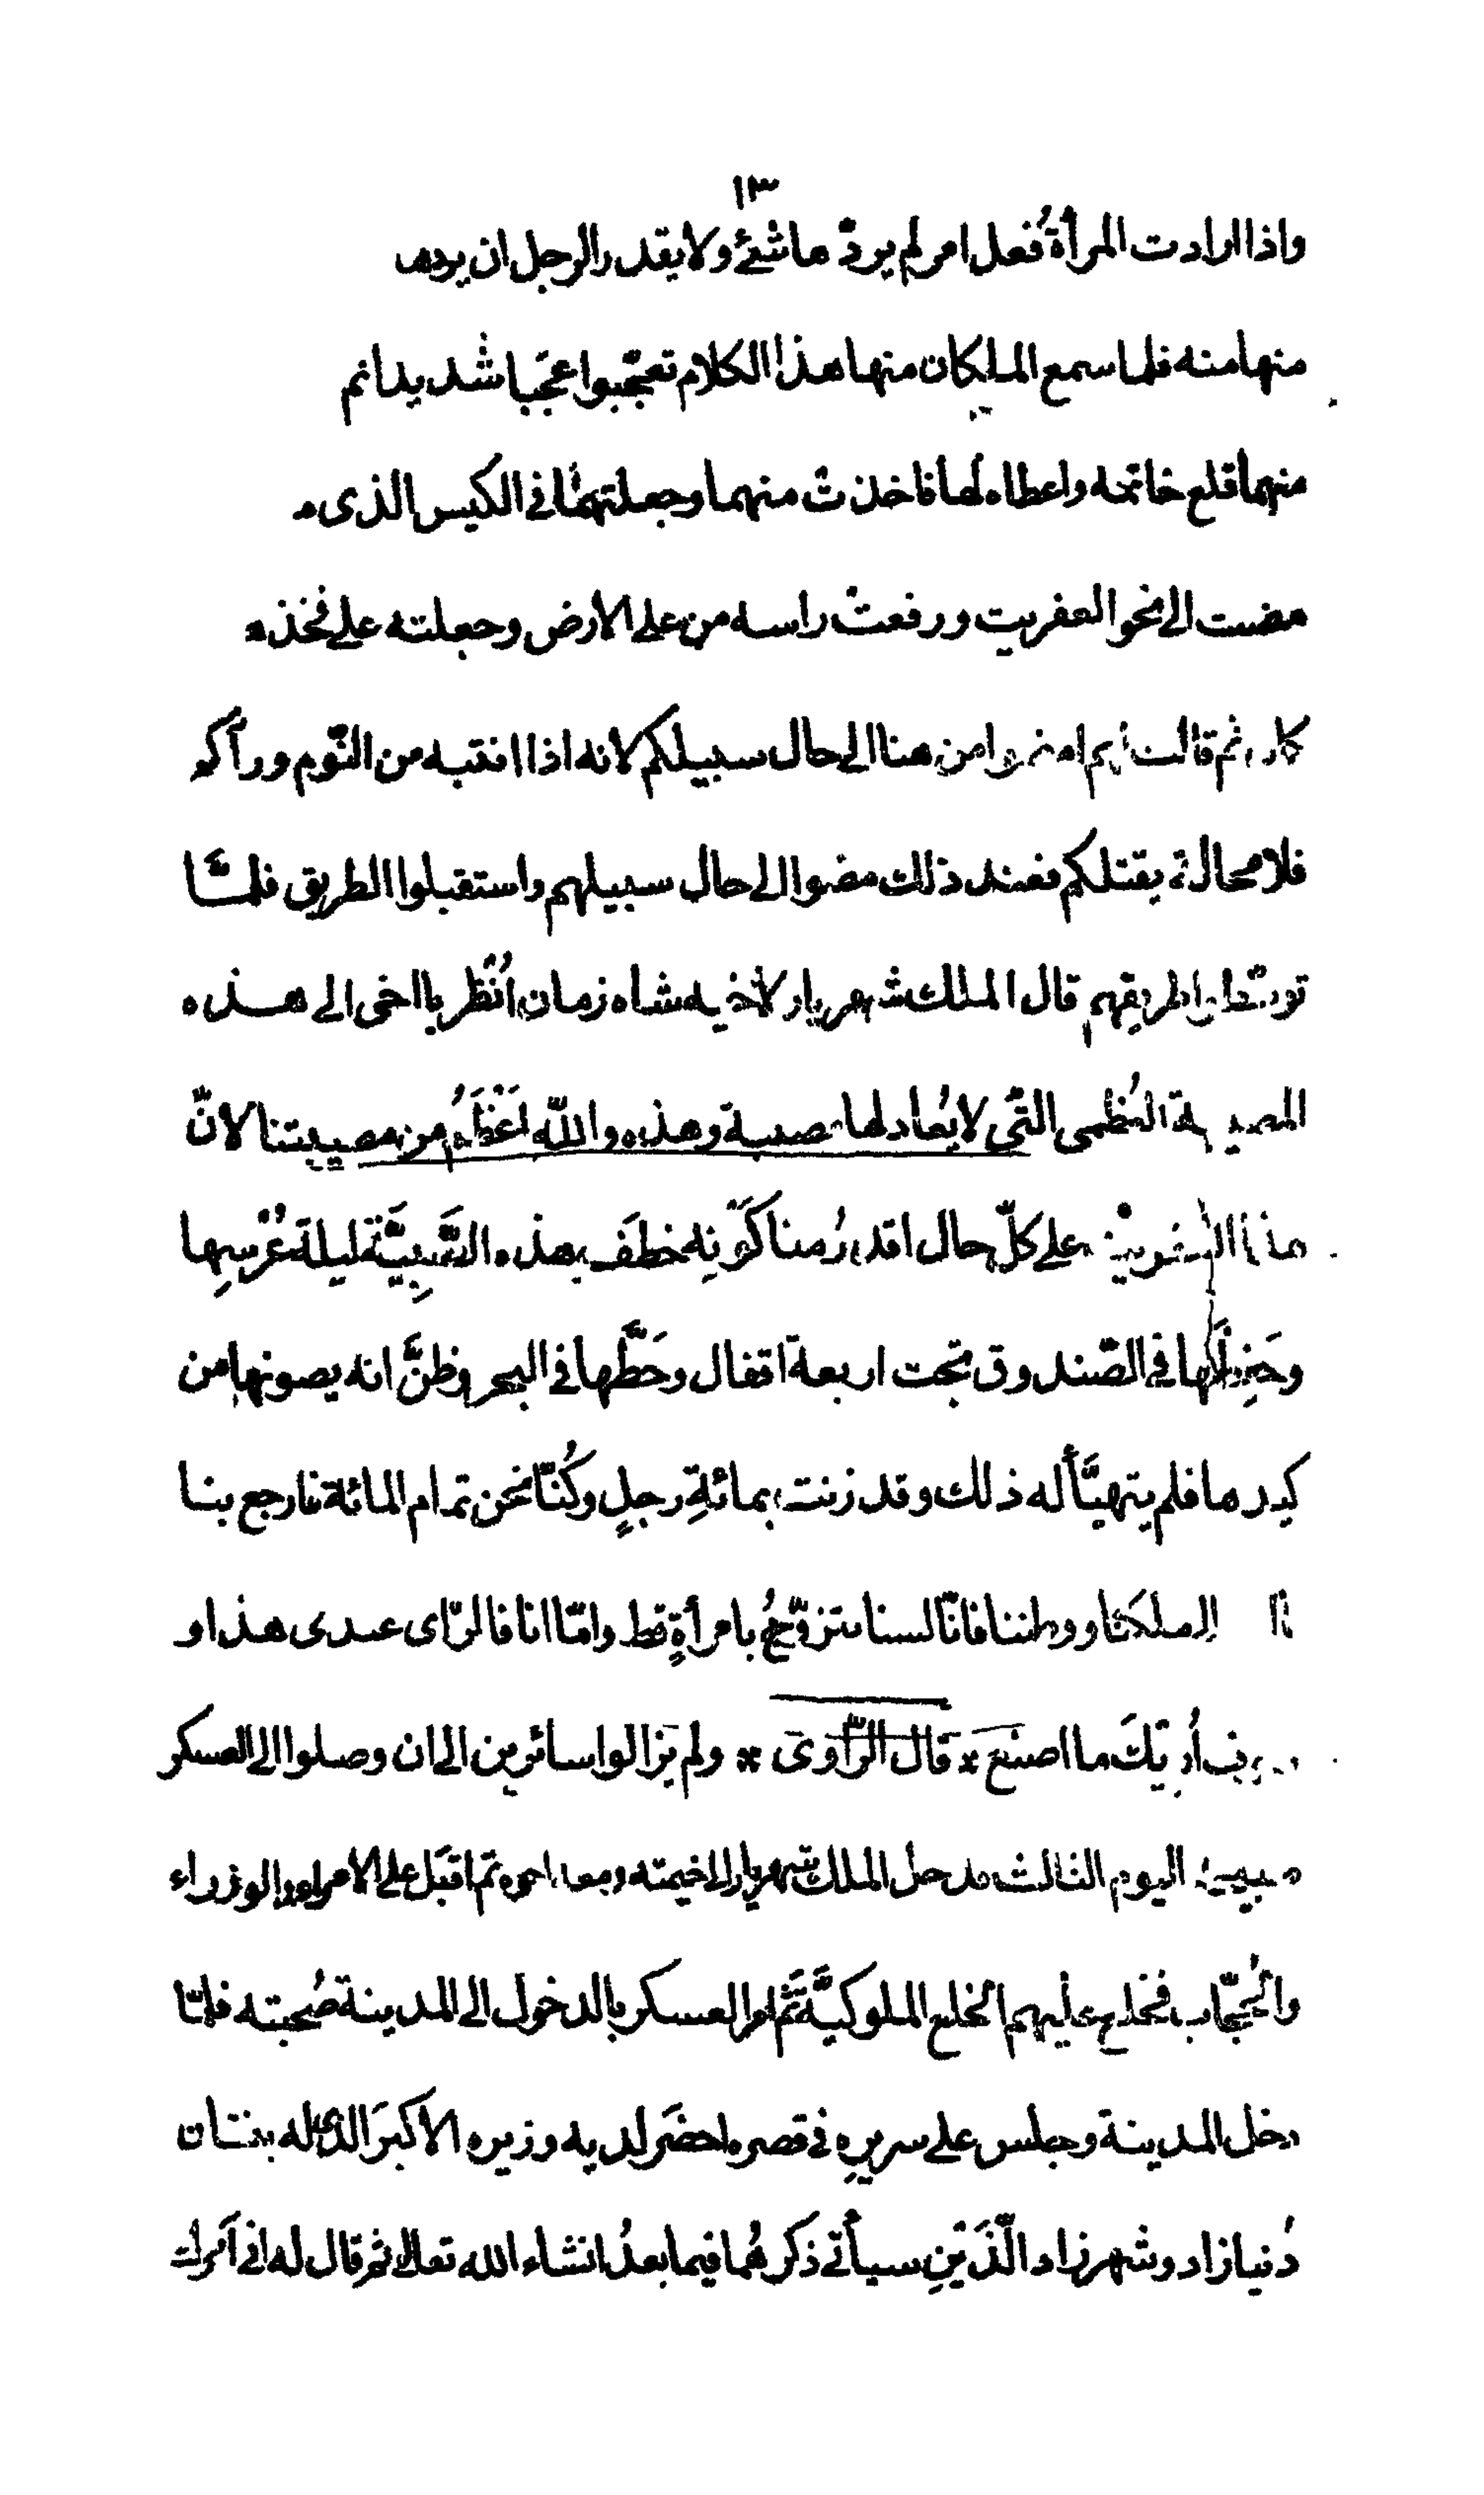 ١٣
واذا ارادت المرأة فُعل امر لم يردّها شئٌ ولا يقدر الرجل ان
منها منه فلما سمع الملكان منها هذا الكلام تعجّبوا عجَبا شديدا ثم
منهما قلع خاتمه واعطاه لها فاخذت منهما وجعلتهما فى الكيس الذى
مضت الى نحو العفريت ورفعت راسه من على الارض وجعلته على فخذه
كان ثم قالت لهم امضوا من هنا الى حال سبيلكم لانه اذا انتبه من النّوم ورآكم
فلا محالة يقتلكم فعند ذلك مضوا الى حال سبيلهم واستقبلوا الطريق فلمّا
توسّطوا طريقهم قال الملك شهريار لاخيه شاه زمان اُنْظر يا اخى الى هذه
المصيبة العُظمى التّى لا يُعادلها مصيبة وهذه واللّه اَعْظَمُ من مصيبتنا لانّ
هذا العفريتْ على كلّ حال اقدرُ منا كَوْنِه خطَف هذه الصَّبِيَّة ليلةَ عُرْسِها
وحَفِظَها فى الصّندوق تحت اربعة اقفال وحَطَّها فى البحر وظنَّ انه يصونها من
كيدها فلم يتهيَّأ له ذلك وقد زنت بمائةِ رجلٍ وكُنّا نحن تمام المائة فارجع بنا
الى ملكنا ووطننا فانّا لسنا نتزوّجُ بامرأةٍ قط وامّا انا فالرّاى عندى هذا و
اُريكَ ما اصنع * قال الرّاوى * ولم يزالوا سائرين الى ان وصلوا الى العسكر
صبيحة اليوم الثالث فدخل الملك شهريار الى خيمته ومعه اخوه ثم اقبَل على الامراء والوزراء
والحُجّاب فخلع عليهم الخلع الملوكيَّة ثَمّ امر العسكر بالدخول الى المدينة صُحبته فلمّا
دخل المدينة وجلس على سريرِه فى قصره احضَر لديه وزيره الاكبرَ الذى له بنتان
دُنيازاد وشهرزاد الّذَيْنِ سيأتى ذكرهُما فيما بعدُ انشاء الله تعالى ثم قال له انى آمرك